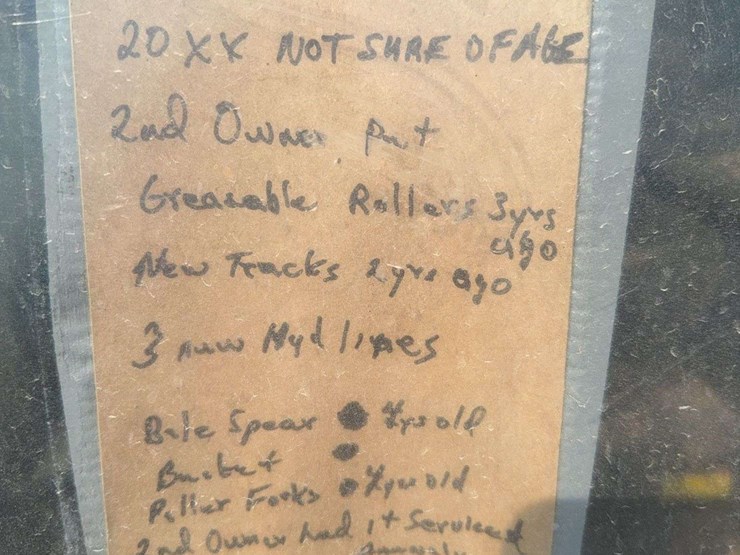 20XX NOT SURE OF AGE
2nd Owner Put
Greaseable Rollers 3yrs
ago
New Tracks 2yrs ago
3 new Hyd lines
Bale Spear yrs old
Bucket
Pallet Forks yrs old
2nd Owner had it Serviced